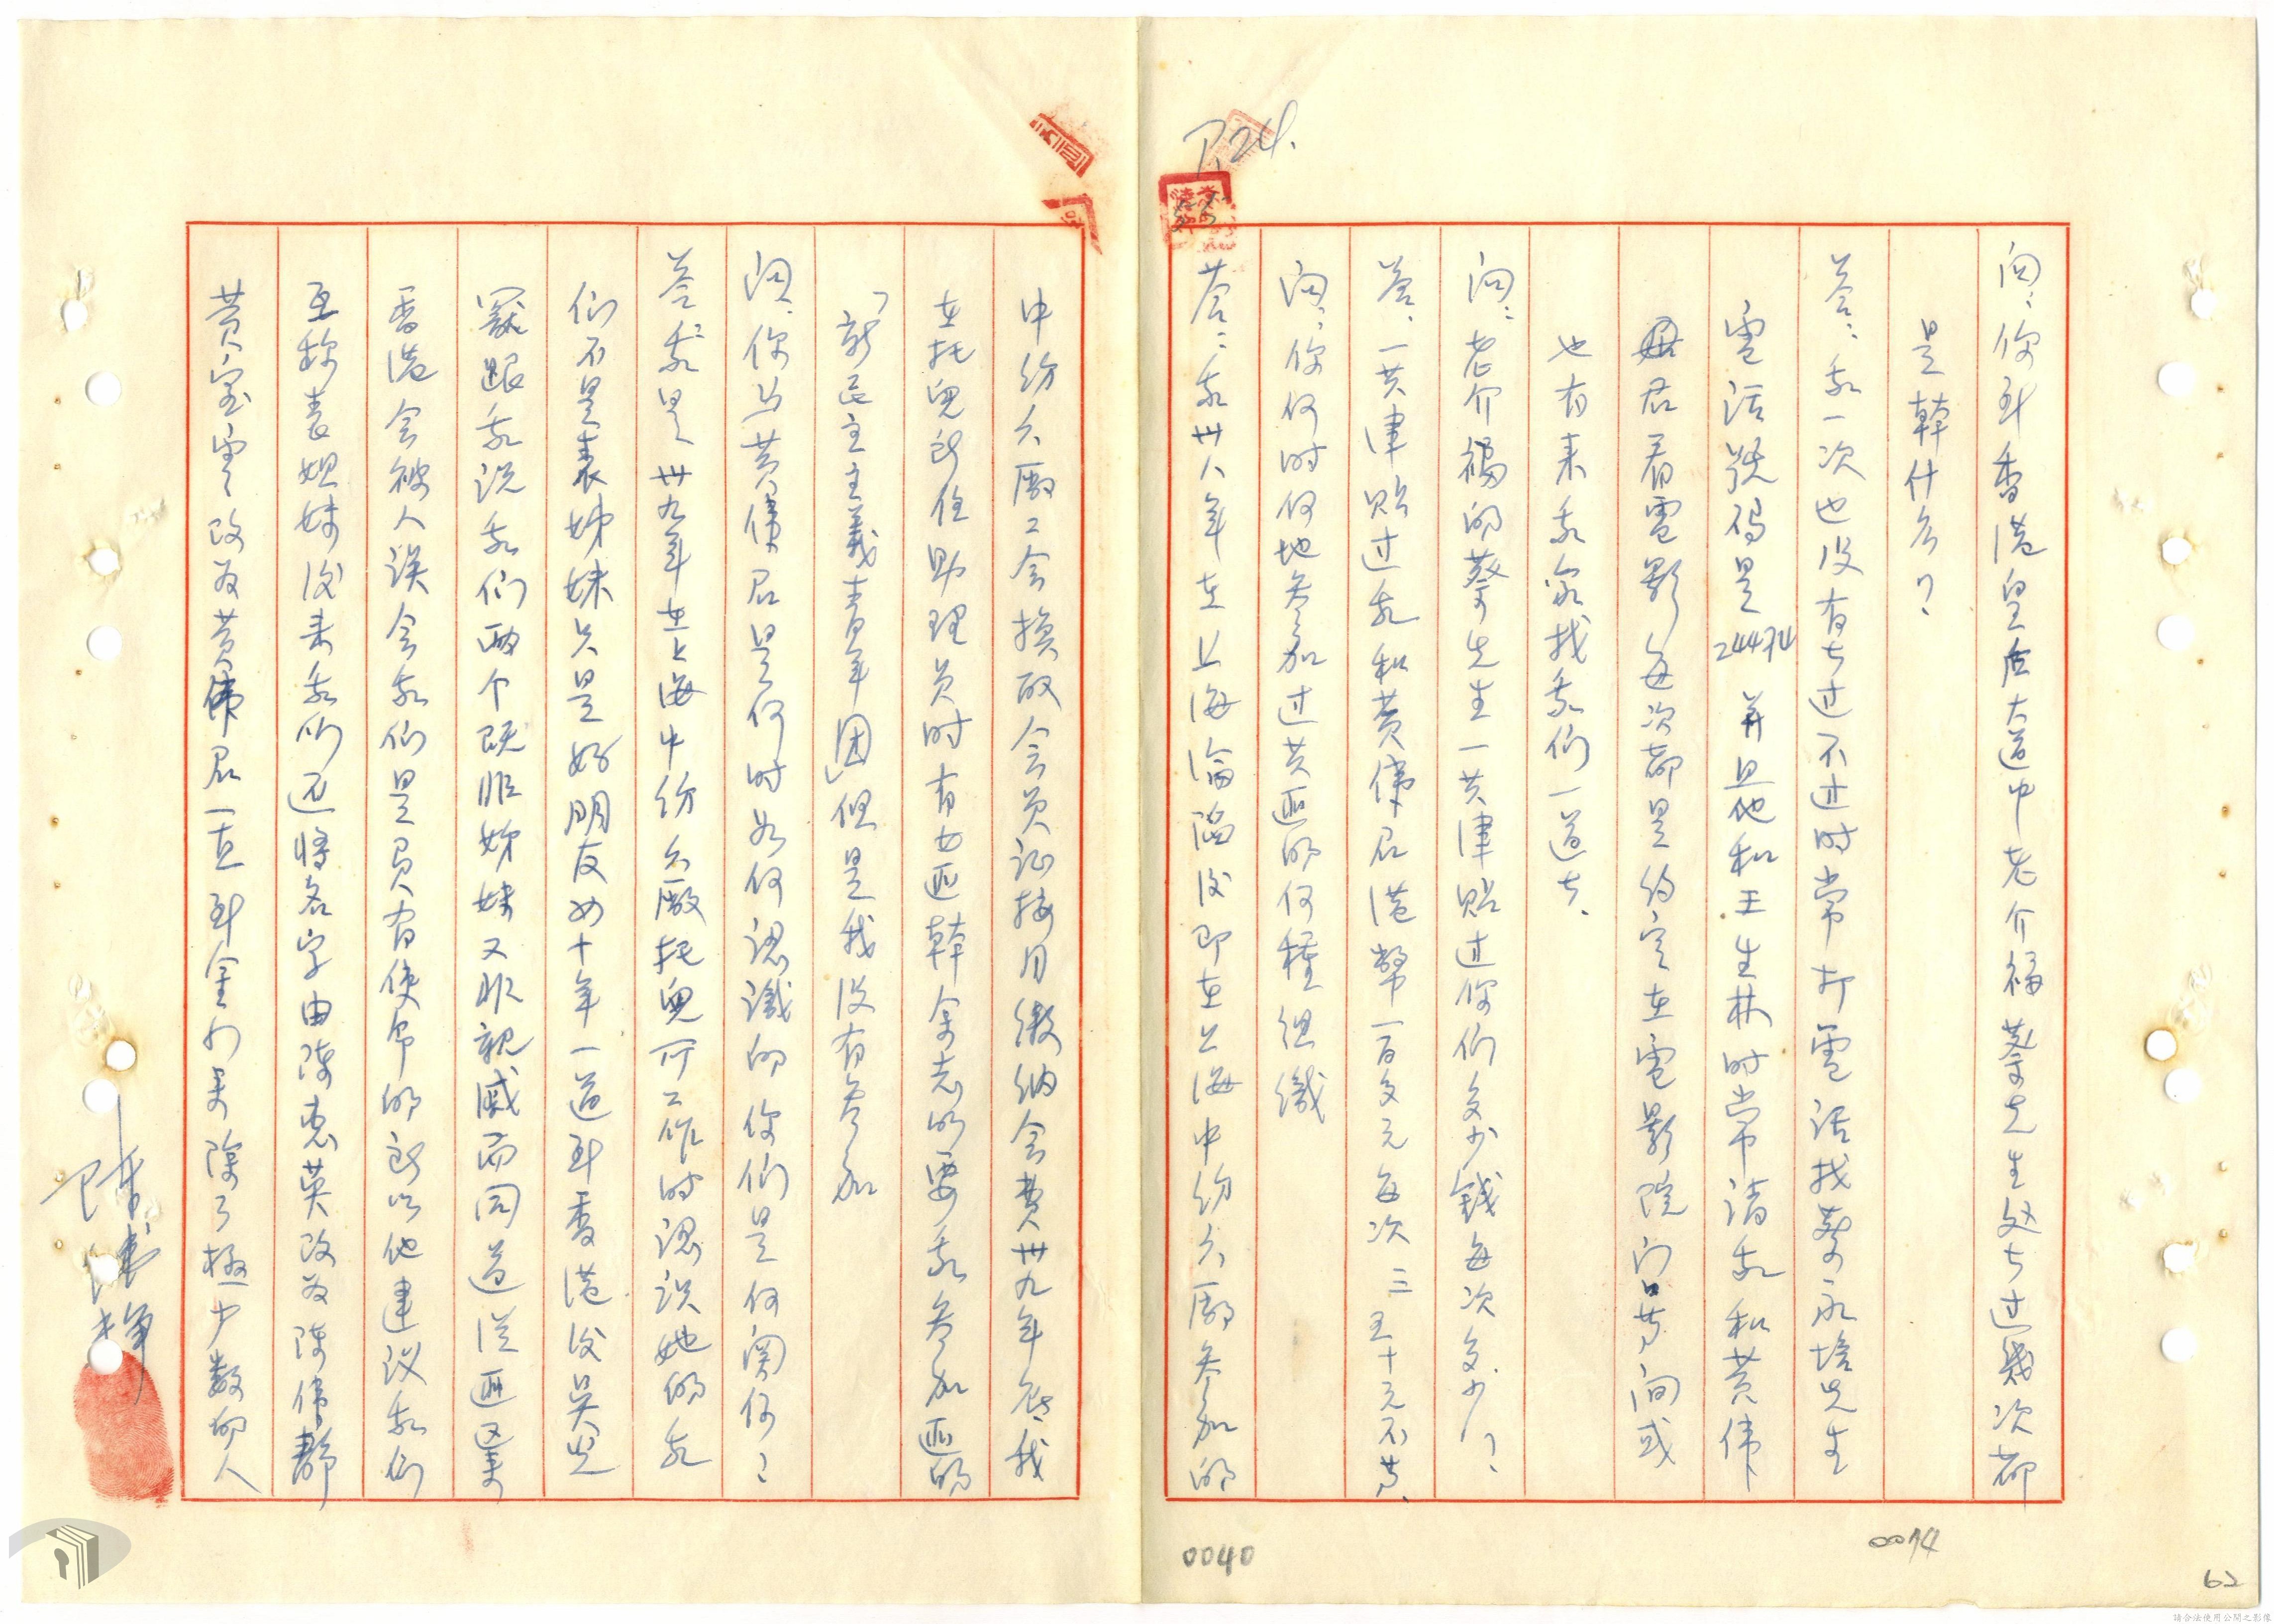 P.24.
問：你到香港皇后大道中老介福蔡先生处去过幾次都
是幹什么？
荅：我一次也没有去过不过时常打電話找蔡永培先生
電话號码是24474并且他和王生林时常请我和黄偉
君看電影每次都是约定在電影院门口芽间或
也有来我家找我们一道去.
问：老介福的蔡先生一共津贴过你们多少錢每次多少？
荅：一共津贴过我和黄偉君港幣一百多元每次三五十元不芽.
问：你何时何地参加过共匪的何種组織
荅：我卅八年在上海淪陷后即在上海中纺六廠参加的
中纺六廠工会換取会员证按月缴纳会费卅九年底我
在托兒所任助理员时有女匪幹余志明要我参加匪的
「新民主主義青年团」但是我没有参加
问：你与黄偉君是何时如何認識的你们是何関係？
荅：我是卅九年在上海中纺六廠托兒所工作时認识她的我
们不是表姊妹只是好朋友四十年一道到香港后吴宪
猷跟我说我们两个既非姊妹又非親戚而同道从匪区来
香港会被人误会我们是负有使命的所以他建议我们
互称表姐妹后来我们还将名字由陈惠英改为陈偉静
黄宝雲改为黄偉君一直到金门来除了極少数的人
0040
0014
62
請合法使用公開之影像